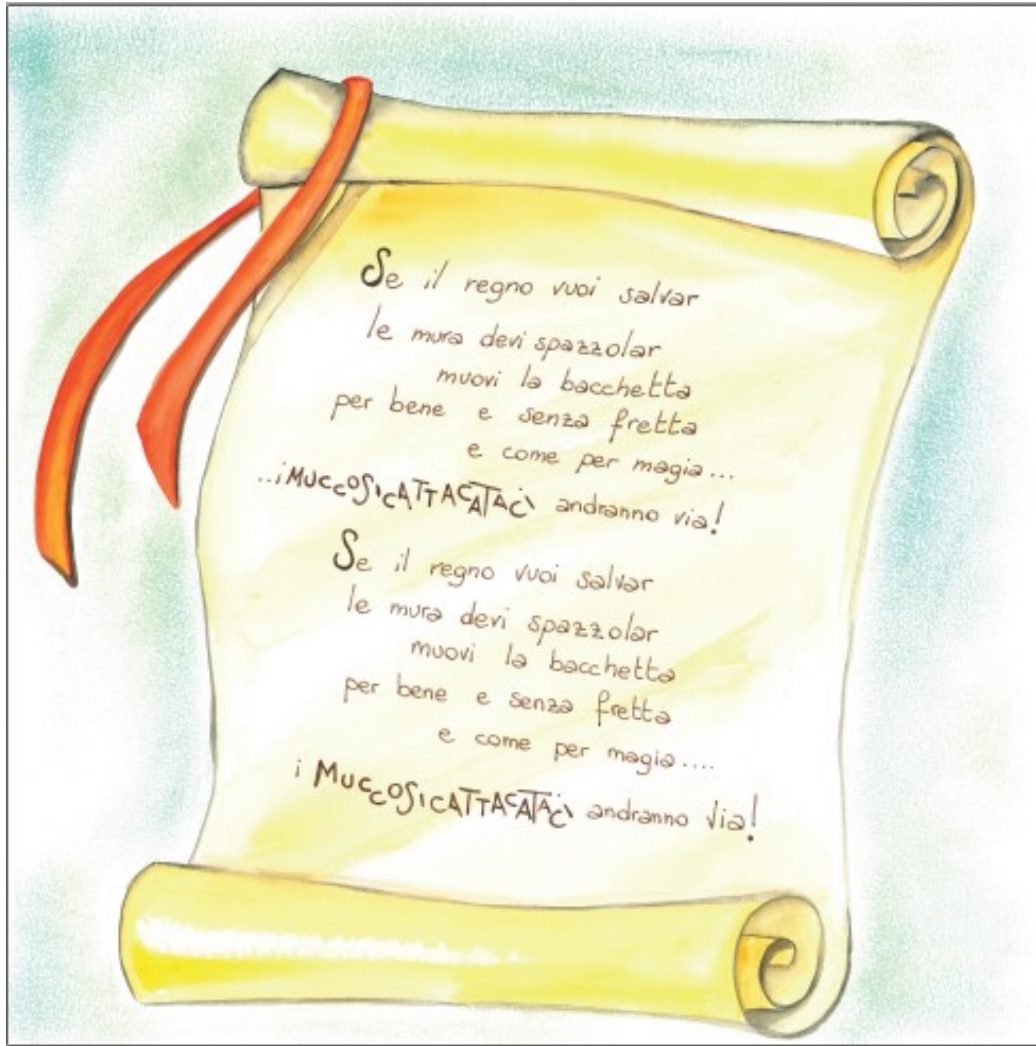 Se il regno vuoi salvar
le mura devi spazzolar
muovi la bacchetta
per bene e senza fretta
e come per magia...
..i MUCCOSICATTACATACì andranno via!
Se il regno vuoi salvar
le mura devi spazzolar
muovi la bacchetta
per bene e senza fretta
e come per magia....
i MUCCOSICATTACATACì andranno via!